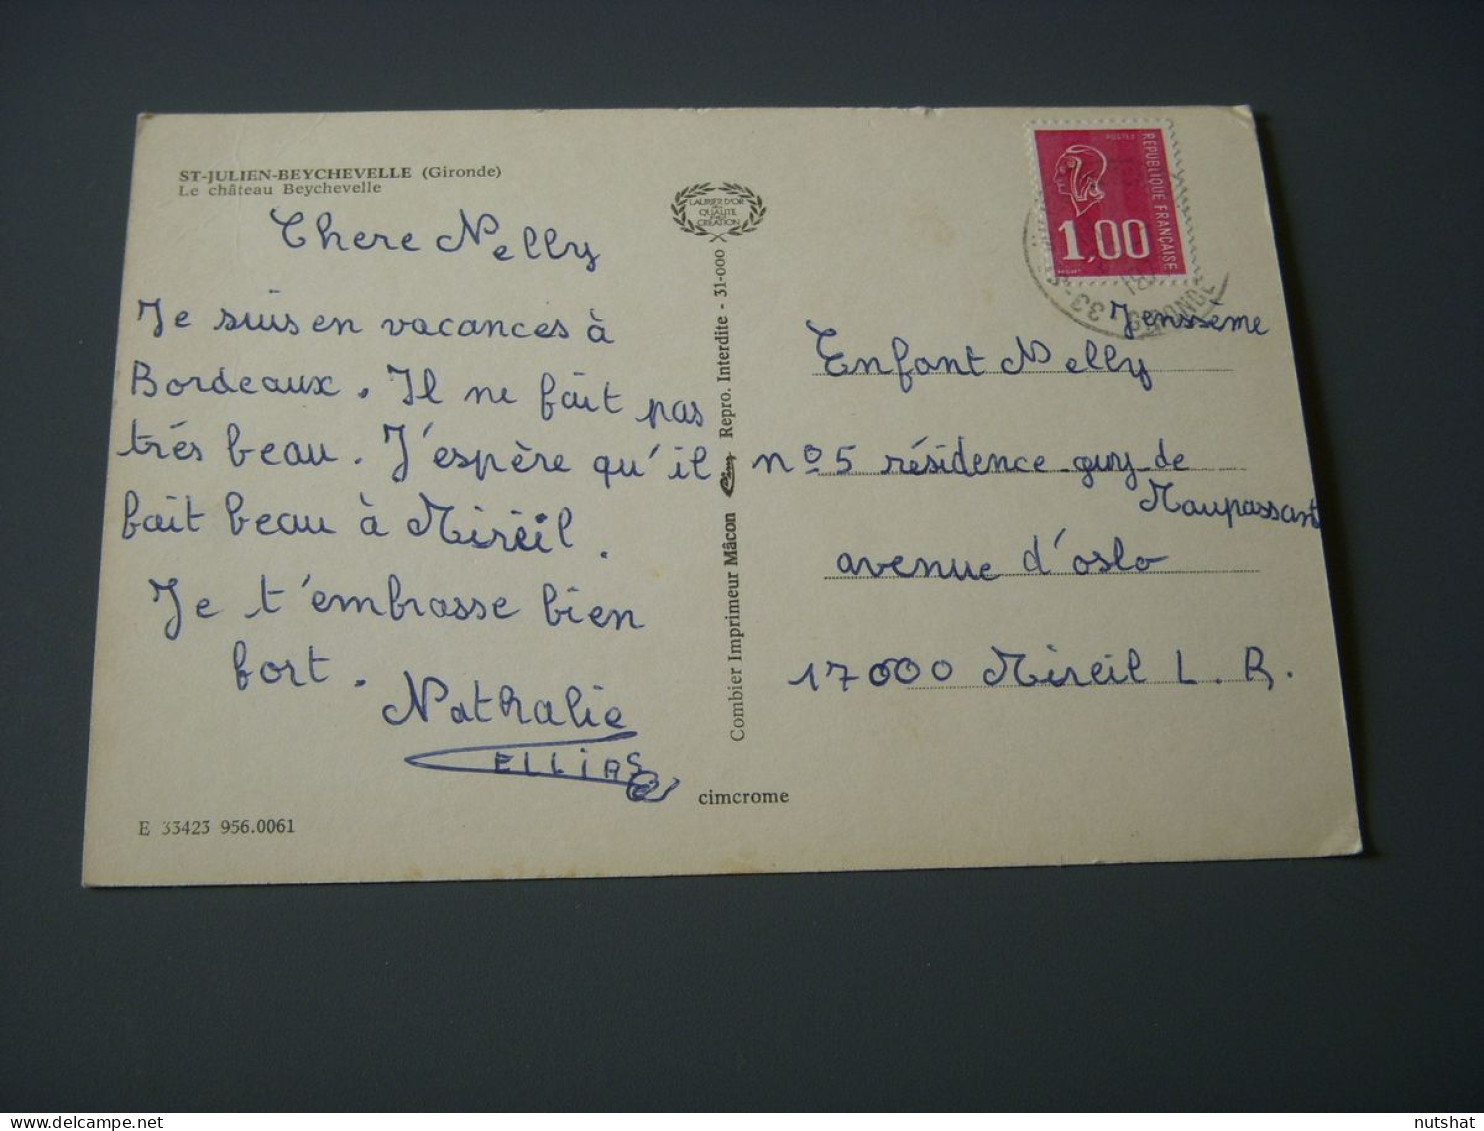 ST-JULIEN-BEYCHEVELLE (Gironde)
Le château Beychevelle
Chere Nelly
Je suis en vacances à
Bordeaux. Il ne fait pas
trés beau. J'espère qu'il
fait beau à Mireil.
Je t'embrasse bien
fort.
Nathalie
ELLIAS
E 33423 956.0061
LAURIER D'OR
QUALITE
CREATION
Combier Imprimeur Mâcon Repro. Interdite - 31-000
cimcrome
REPUBLIQUE FRANÇAISE
1,00
33
GIRONDE
Jensseme
Enfant Nelly
nº 5 résidence guy de
Maupassant
avenue d'oslo
17000 Mireil L. R.
nutshat